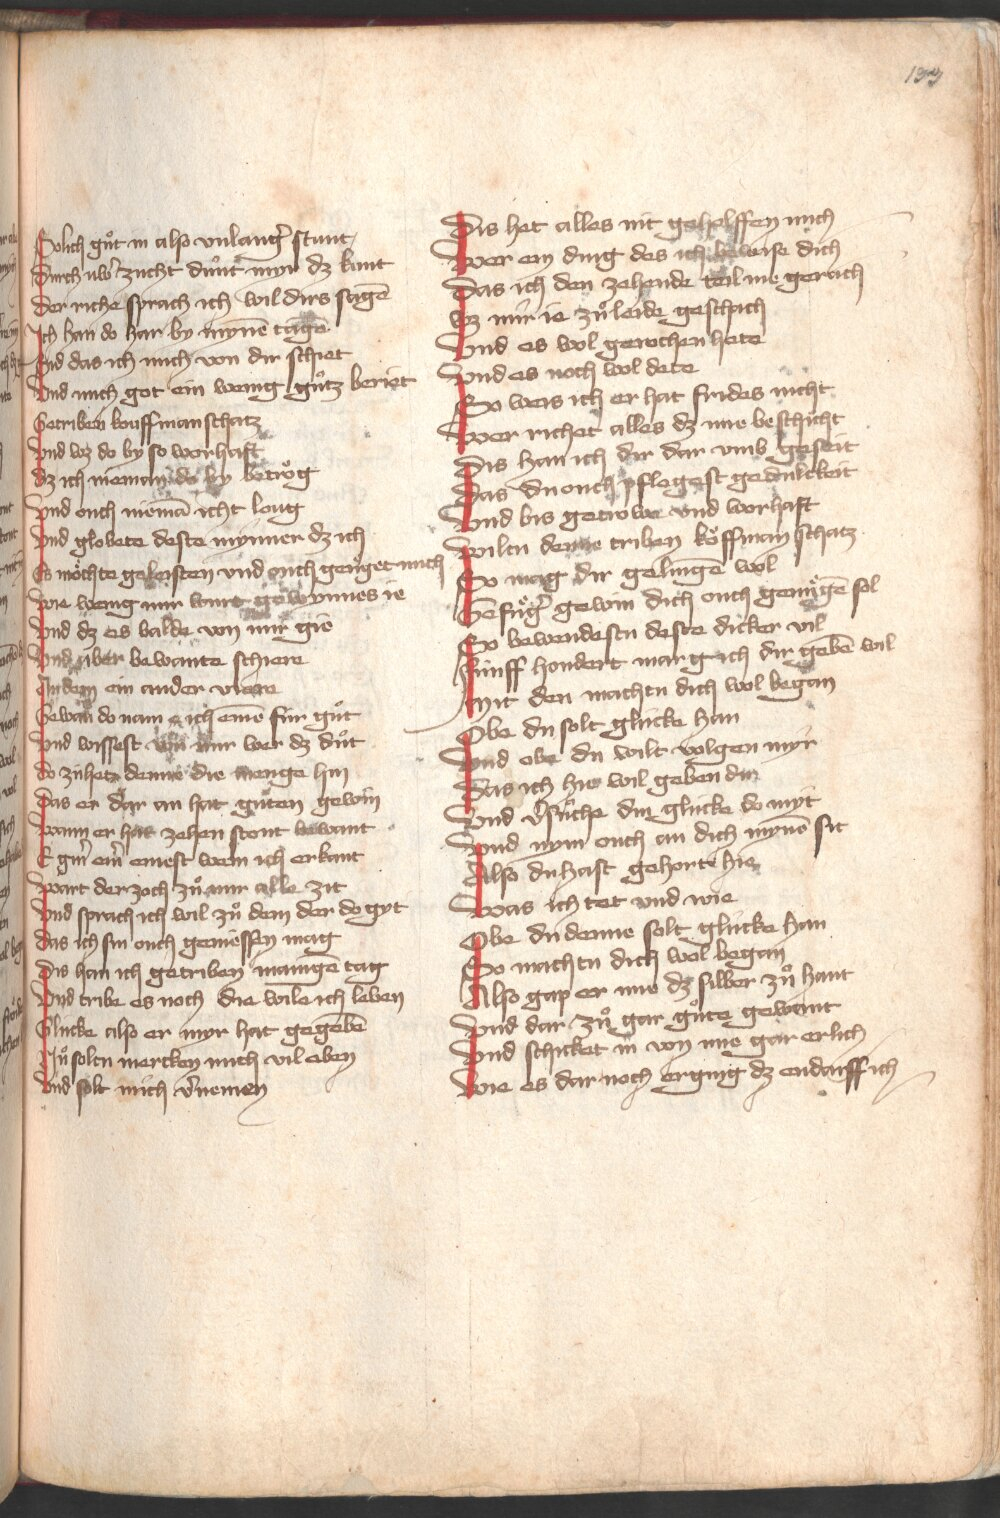 133
Solich gůt in also unlang͛ stunt
Durch uw͛ zucht důnt myr dz kunt
Der riche sprach ich wil dirs sagē
Ich han do har by mynē tagē
Und das ich mich von dir schiet
Und mich got ein wenig gůtz beriet
Getriben kouffmanschatz
Und wz do by so worhaft
Dz ich nieman do by betrog
Und ouch niemā icht loug
Und globete deste mynner dz ich
Es mochte geleisten und ouch genůget mich
Wie wenig mir wart gewynnes ie
Und dz es balde von mir gie
Und aber bewante schiere
In dem ein ander viere
Gewan do nam ich eine für gůt
Und wissest wer dz důt
Do zühet denne die menge hin
Das er dar an hat gůten gewin
Wann er hat zehen stont bewant
E gin͛ ein͛ einest wem ich erkant
Wart der zoch zů mir alle zit
Und sprach ich wil zů dem der do gyt
Das ich sin ouch geniessen mag
Dis han ich getriben manigē tag
Und tribe es noch die wile ich leben
Glücke also er myr hat gegebē
Nů soltu mercken mich vil eben
Und solt mich v͛nemen
Dis het alles nit geholffen mich
Wer ein ding des ich bewise dich
Das ich den zehende teil nie gerach
Wz mir ie zů leide geschach
Und es wol gerochen hete
Und es noch wol dete
So weis ich er hat frides nicht
Wer richet alles dz ime beschicht
Dis han ich dir dar umb geseit
Das du ouch pflegest gedultkeit
Und bis getrowe und worhaft
Wiltu denne triben köffmanschatz
So mag dir gelingē wol
Gefůg͛ gewin dich ouch genůgē sol
So bewendestu deste dicker vil
Fünff hondert marg ich dir gebē wil
Mit den machtu dich wol began
Obe du solt glücke han
Und obe du wilt volgen myr
Das ich hie wil geben dir
Und v͛sůche din glücke do myt
Und nym ouch an dich mynē sit
Also du hast gehort hie
Was ich tet und wie
Obe du denne solt glücke han
So machtu dich wol began
Also gap er ime dz silber zů hant
Und dar zů gar gůte gewant
Und schicket in von ime gar erlich
Wie es dar noch erging dz endarff ich